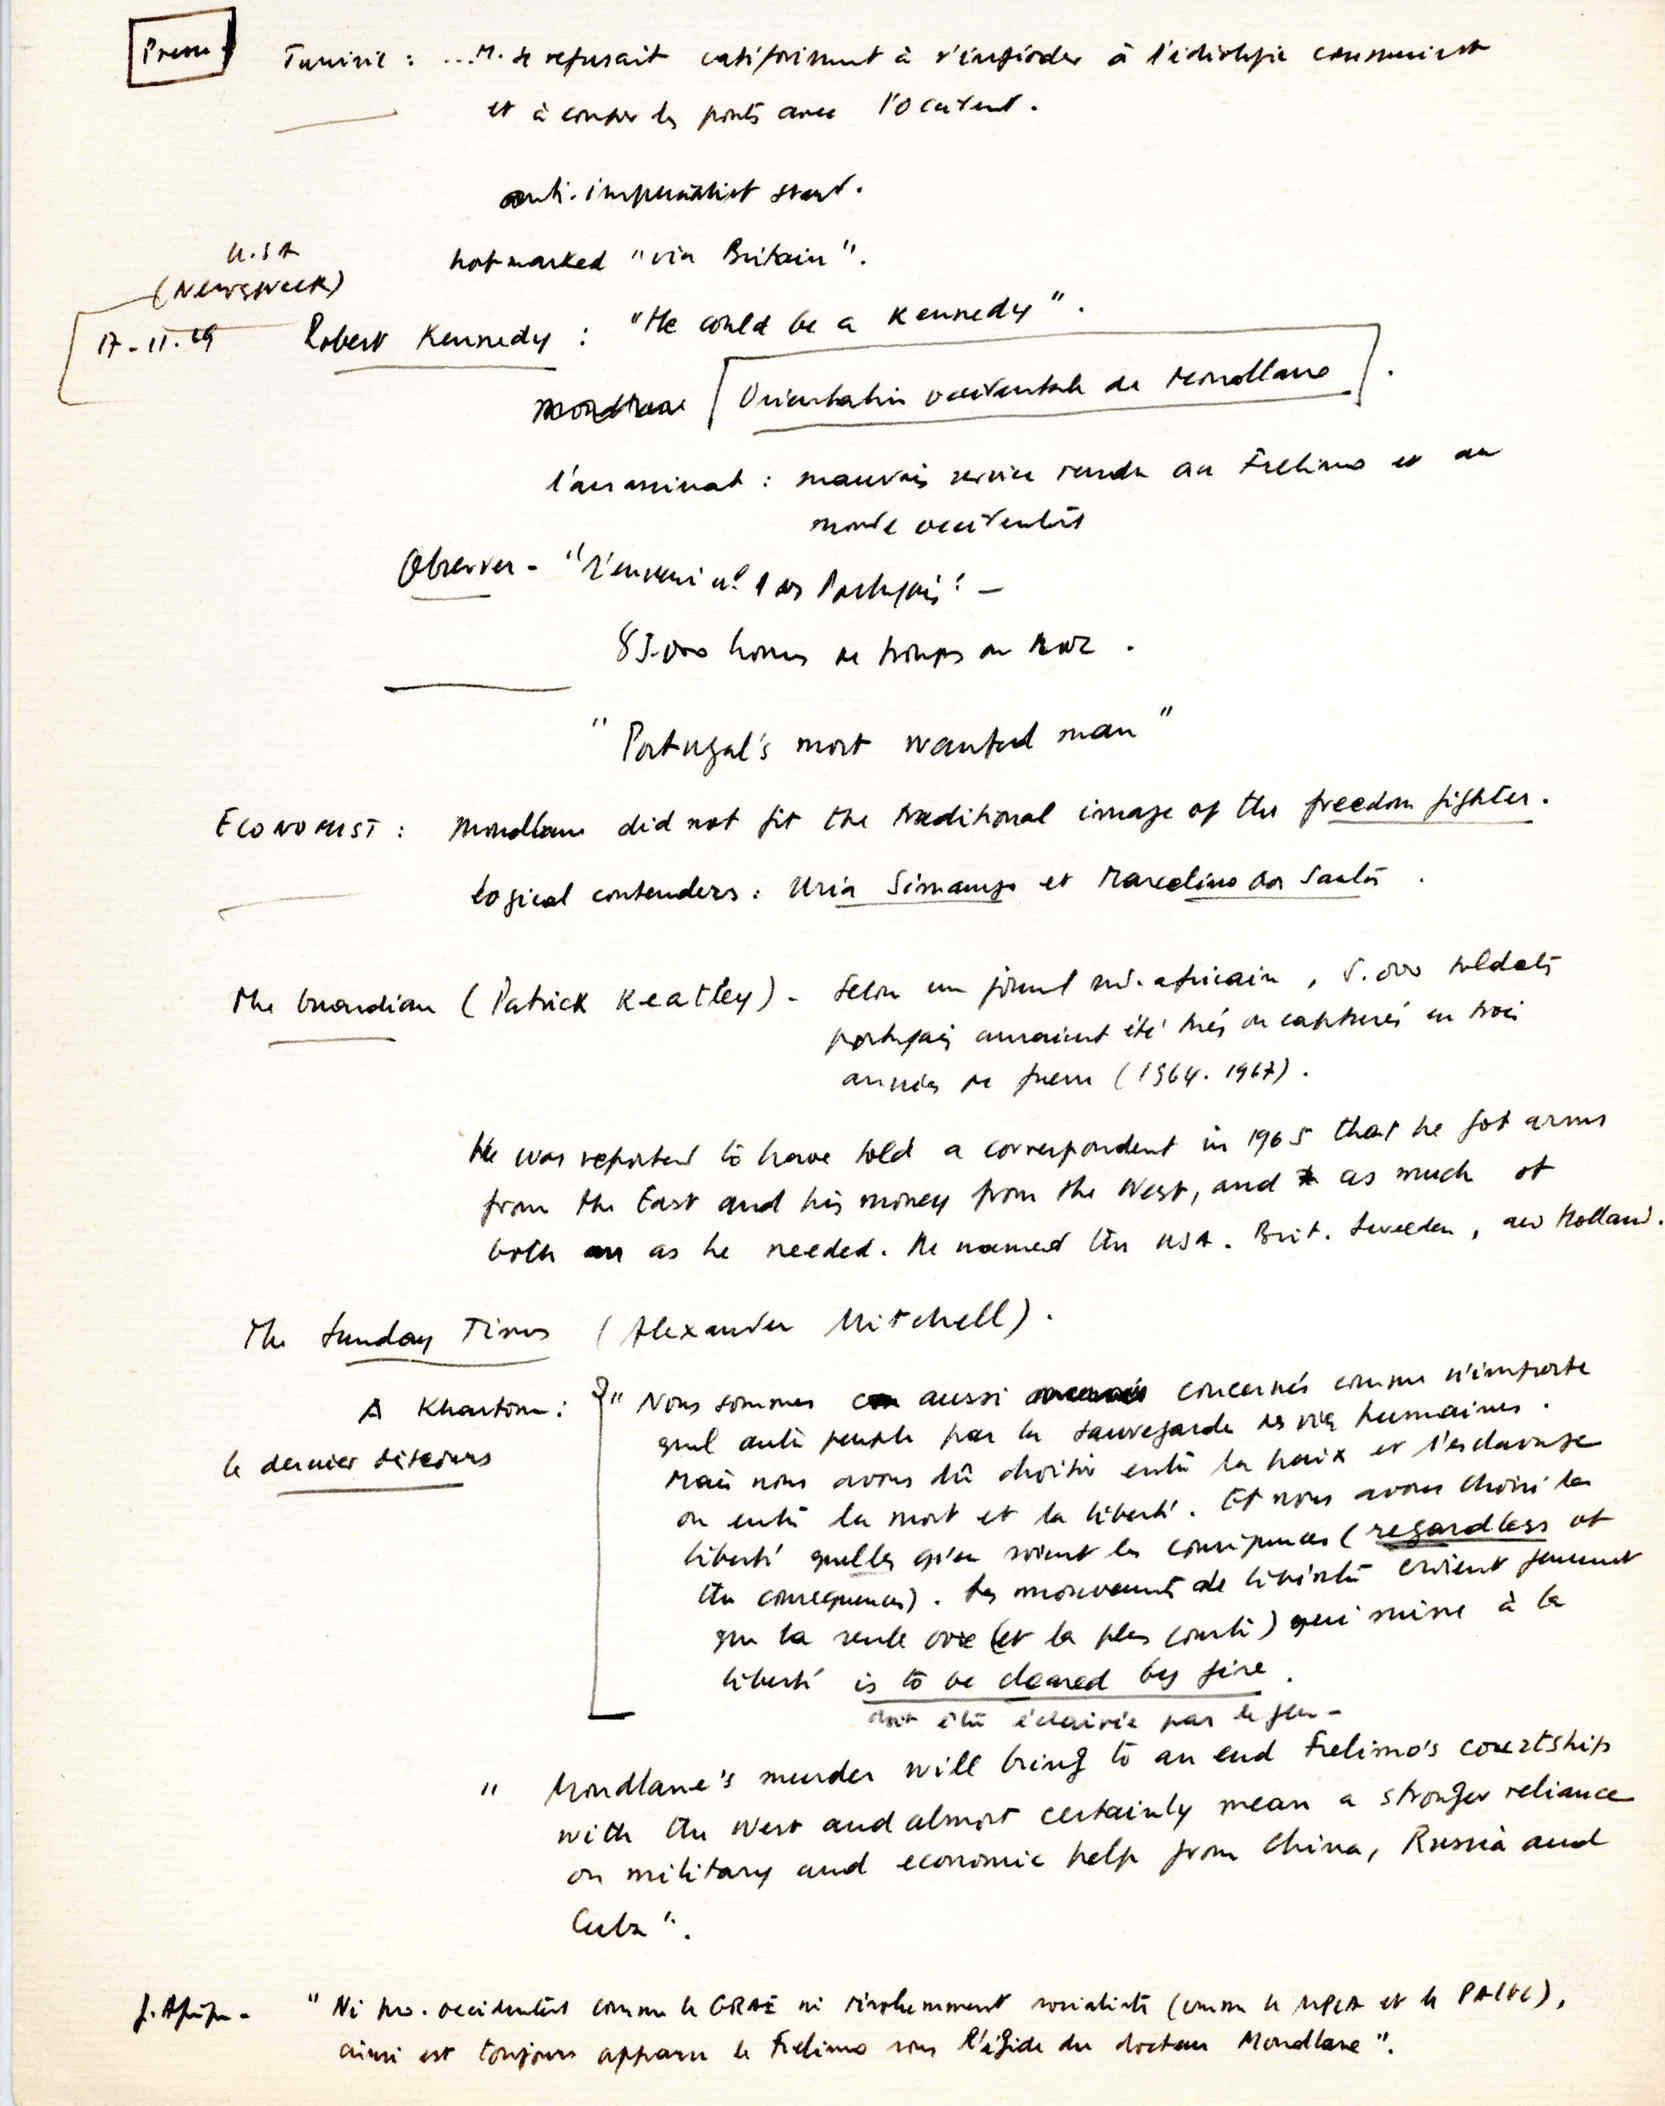 Presse
Tunisie : ...M. se refusait catégoriquement à s'inféoder à l'idéologie communiste
et à couper les ponts avec l'Occident.
anti-imperialist stand.
not marked "via Britain".
U.S.A
(Newsweek)
17-II-69 Robert Kennedy : "He could be a Kennedy".
Orientation occidentale de Mondlane .
l'assassinat : mauvais service rendu au Frelimo et au
monde occidental
Observer - "L'ennemi nº 1 des Portugais" -
hommes de troupes au MOZ .
"Portugal's most wanted man"
ECONOMIST : Mondlane did not fit the traditional image of the freedom fighter.
Logical contenders : Uria Simango et Marcelino dos Santos .
The Guardian (Patrick Keatley) - Selon un journal sud-africain, 5.000 soldats
portugais auraient été tués ou capturés en trois
années de guerre (1964-1967).
He was reported to have told a correspondent in 1965 that he got arms
from the East and his money from the West, and as much of
both as he needed. He named the USA. Brit. Sweeden, and Holland.
The Sunday Times (Alexander Mitchell).
A Khartoum : " Nous sommes aussi concernés comme n'importe
quel autre peuple par la sauvegarde des vies humaines.
le dernier discours
Mais nous avons dû choisir entre la paix et l'esclavage
ou entre la mort et la liberté. Et nous avons choisi la
liberté quelles qu'en soient les conséquences (regardless of
the consequences). Les mouvements de libération croient fermement
que la seule voie (et la plus courte) qui mène à la
liberté is to be cleared by fire.
doit être éclairée par le feu -
" Mondlane's murder will bring to an end Frelimo's courtship
with the West and almost certainly mean a stronger reliance
on military and economic help from China, Russia and
Cuba".
J. Afrique - " Ni pro-occidental comme le GRAE ni résolument socialiste (comme le MPLA et le PAIGC),
ainsi est toujours apparu le Frelimo sous l'égide du docteur Mondlane".